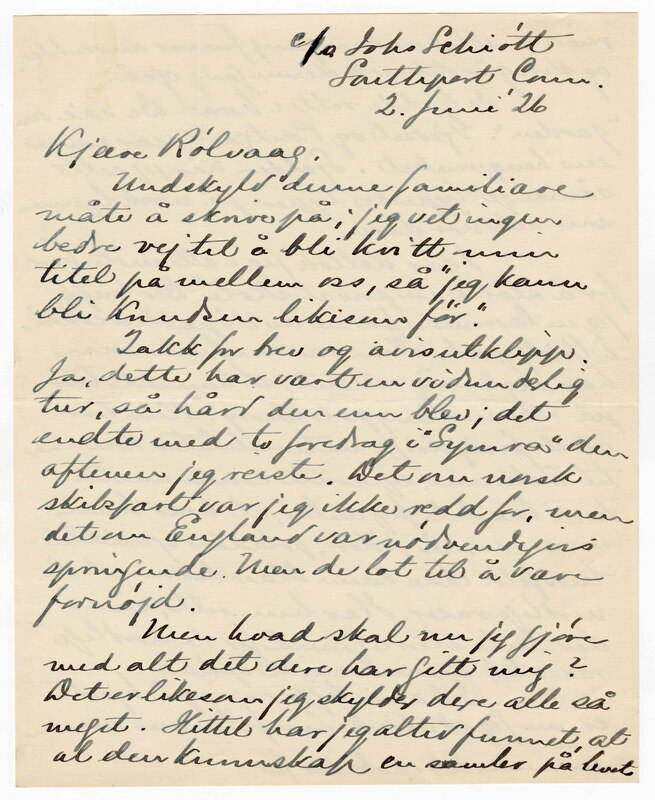 c/o Johs Schiött
Southport Conn.
2. Juni '26
Kjære Rölvaag.
Undskyld denne familiære
måte å skrive på; jeg vet ingen
bedre vej til å bli kvitt min
titel på mellem oss, så "jeg kann
bli Knudsen likesom för."
Takk for brev og avisutklipp.
Ja, dette har vært en vidunderlig
tur, så hård den enn blev; det
endte med to foredrag i "Symra" den
aftenen jeg reiste. Det om norsk
skibsfart var jeg ikke redd for, men
det om England var nödvendigvis
springende. Men de lot til å være
fornöjd.
Men hvad skal nu jeg gjöre
med alt det dere har gitt mig?
Det er likesom jeg skylder dere alle så
meget. Hittil har jeg altid funnet, at
al den kunnskap en samler på livets